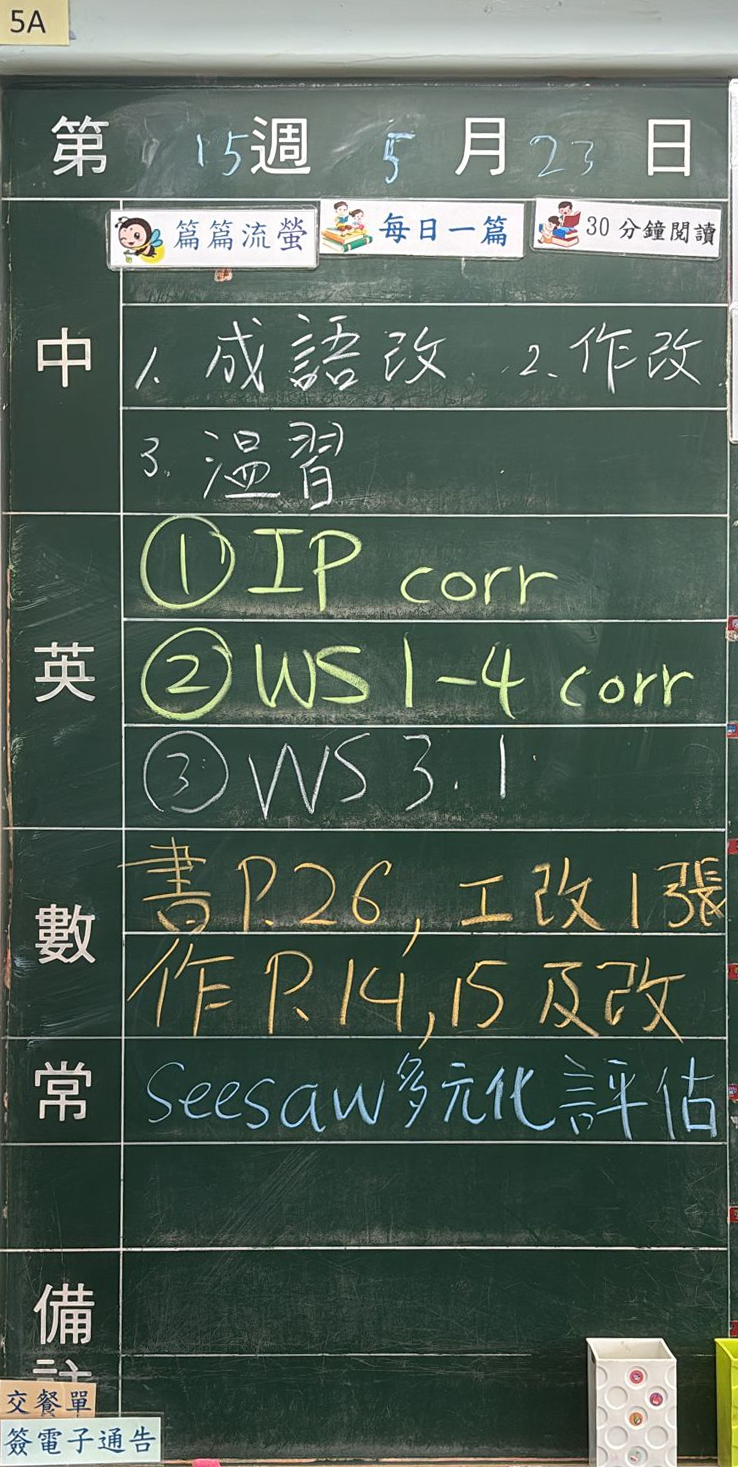 5A
第 15 週 5 月 23 日
篇篇流螢 每日一篇 30分鐘閱讀
中
1. 成語改 2. 作改
3. 溫習
英
① IP corr
② WS 1-4 corr
③ WS 3.1
數
書 P.26, 工改1張
作 P.14,15 及改
常
Seesaw多元化評估
備註
交餐單
簽電子通告